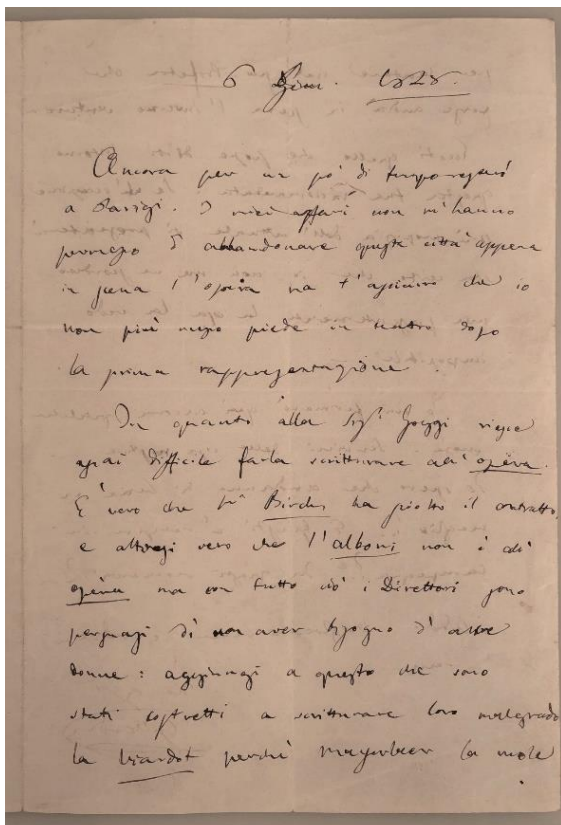 6 Genn. 1848.
Ancora per un pò di tempo resterò
a Parigi. I miei affari non m'hanno
permesso d'abbandonare questa città appena
in scena l'opera ma t'assicuro che io
non più messo piede in teatro dopo
la prima rappresentazione.
In quanto alla Sigª Gazzi riesce
assai difficile farla scritturare all' opéra.
È vero che Birch ha sciolto il contratto,
e altresì vero che l'alboni non è all'
opéra ma con tutto ciò i Direttori sono
persuasi di non aver bisogno d'altre
donne: aggiungasi a questo che sono
stati costretti a scritturare loro malgrado
la Viardot perchè Mayerbeer la vuole